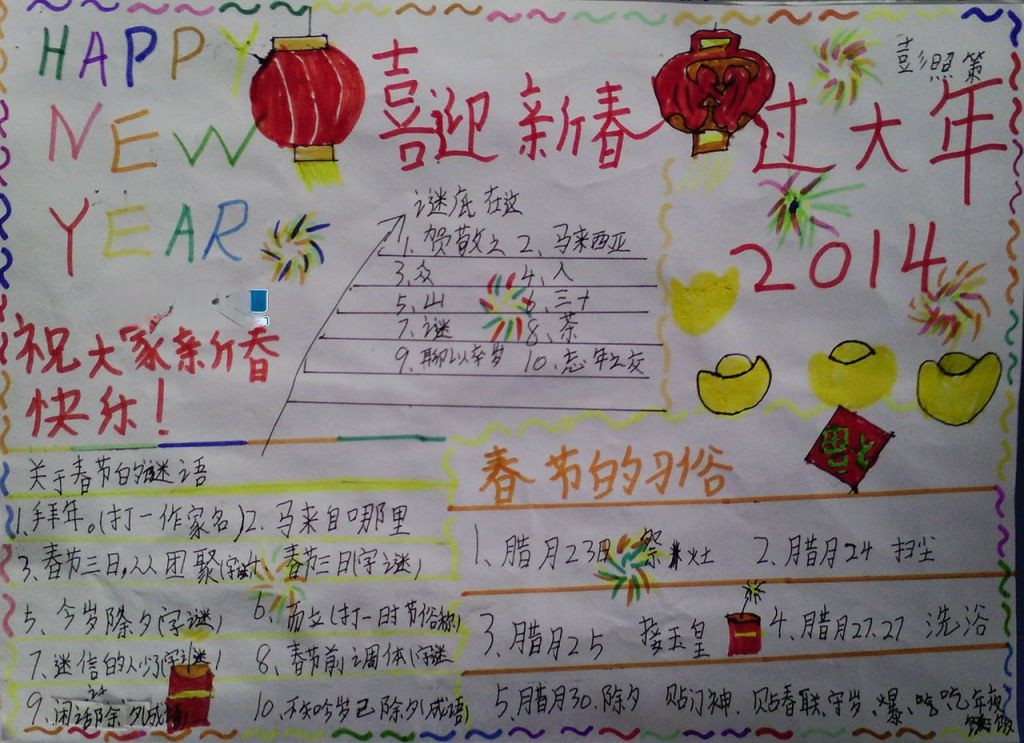 HAPPY
NEW
YEAR
喜迎新春
过大年
2014
彭照第
祝大家新春
快乐!
谜底在这
1、贺敬之 2、马来西亚
3、众 4、人
5、山 6、三十
7、谜 8、茶
9、聊以卒岁 10、忘年之交
关于春节的谜语
1.拜年。(打一作家名)2、马来自哪里
3、春节三日,人人团聚(字谜) 春节三日(字谜)
5、今岁除夕(字谜) 6、而立(打一时节俗称)
7、迷信的人少了(字谜) 8、春节前调休(字谜
9、闲话除夕(成语) 10、不知今岁已除夕(成语)
春节的习俗
1、腊月23日 祭灶 2、腊月24 扫尘
3、腊月25 接玉皇 4、腊月27.27 洗浴
5、腊月30.除夕 贴门神、贴春联、守岁、爆、吃年夜饭
福